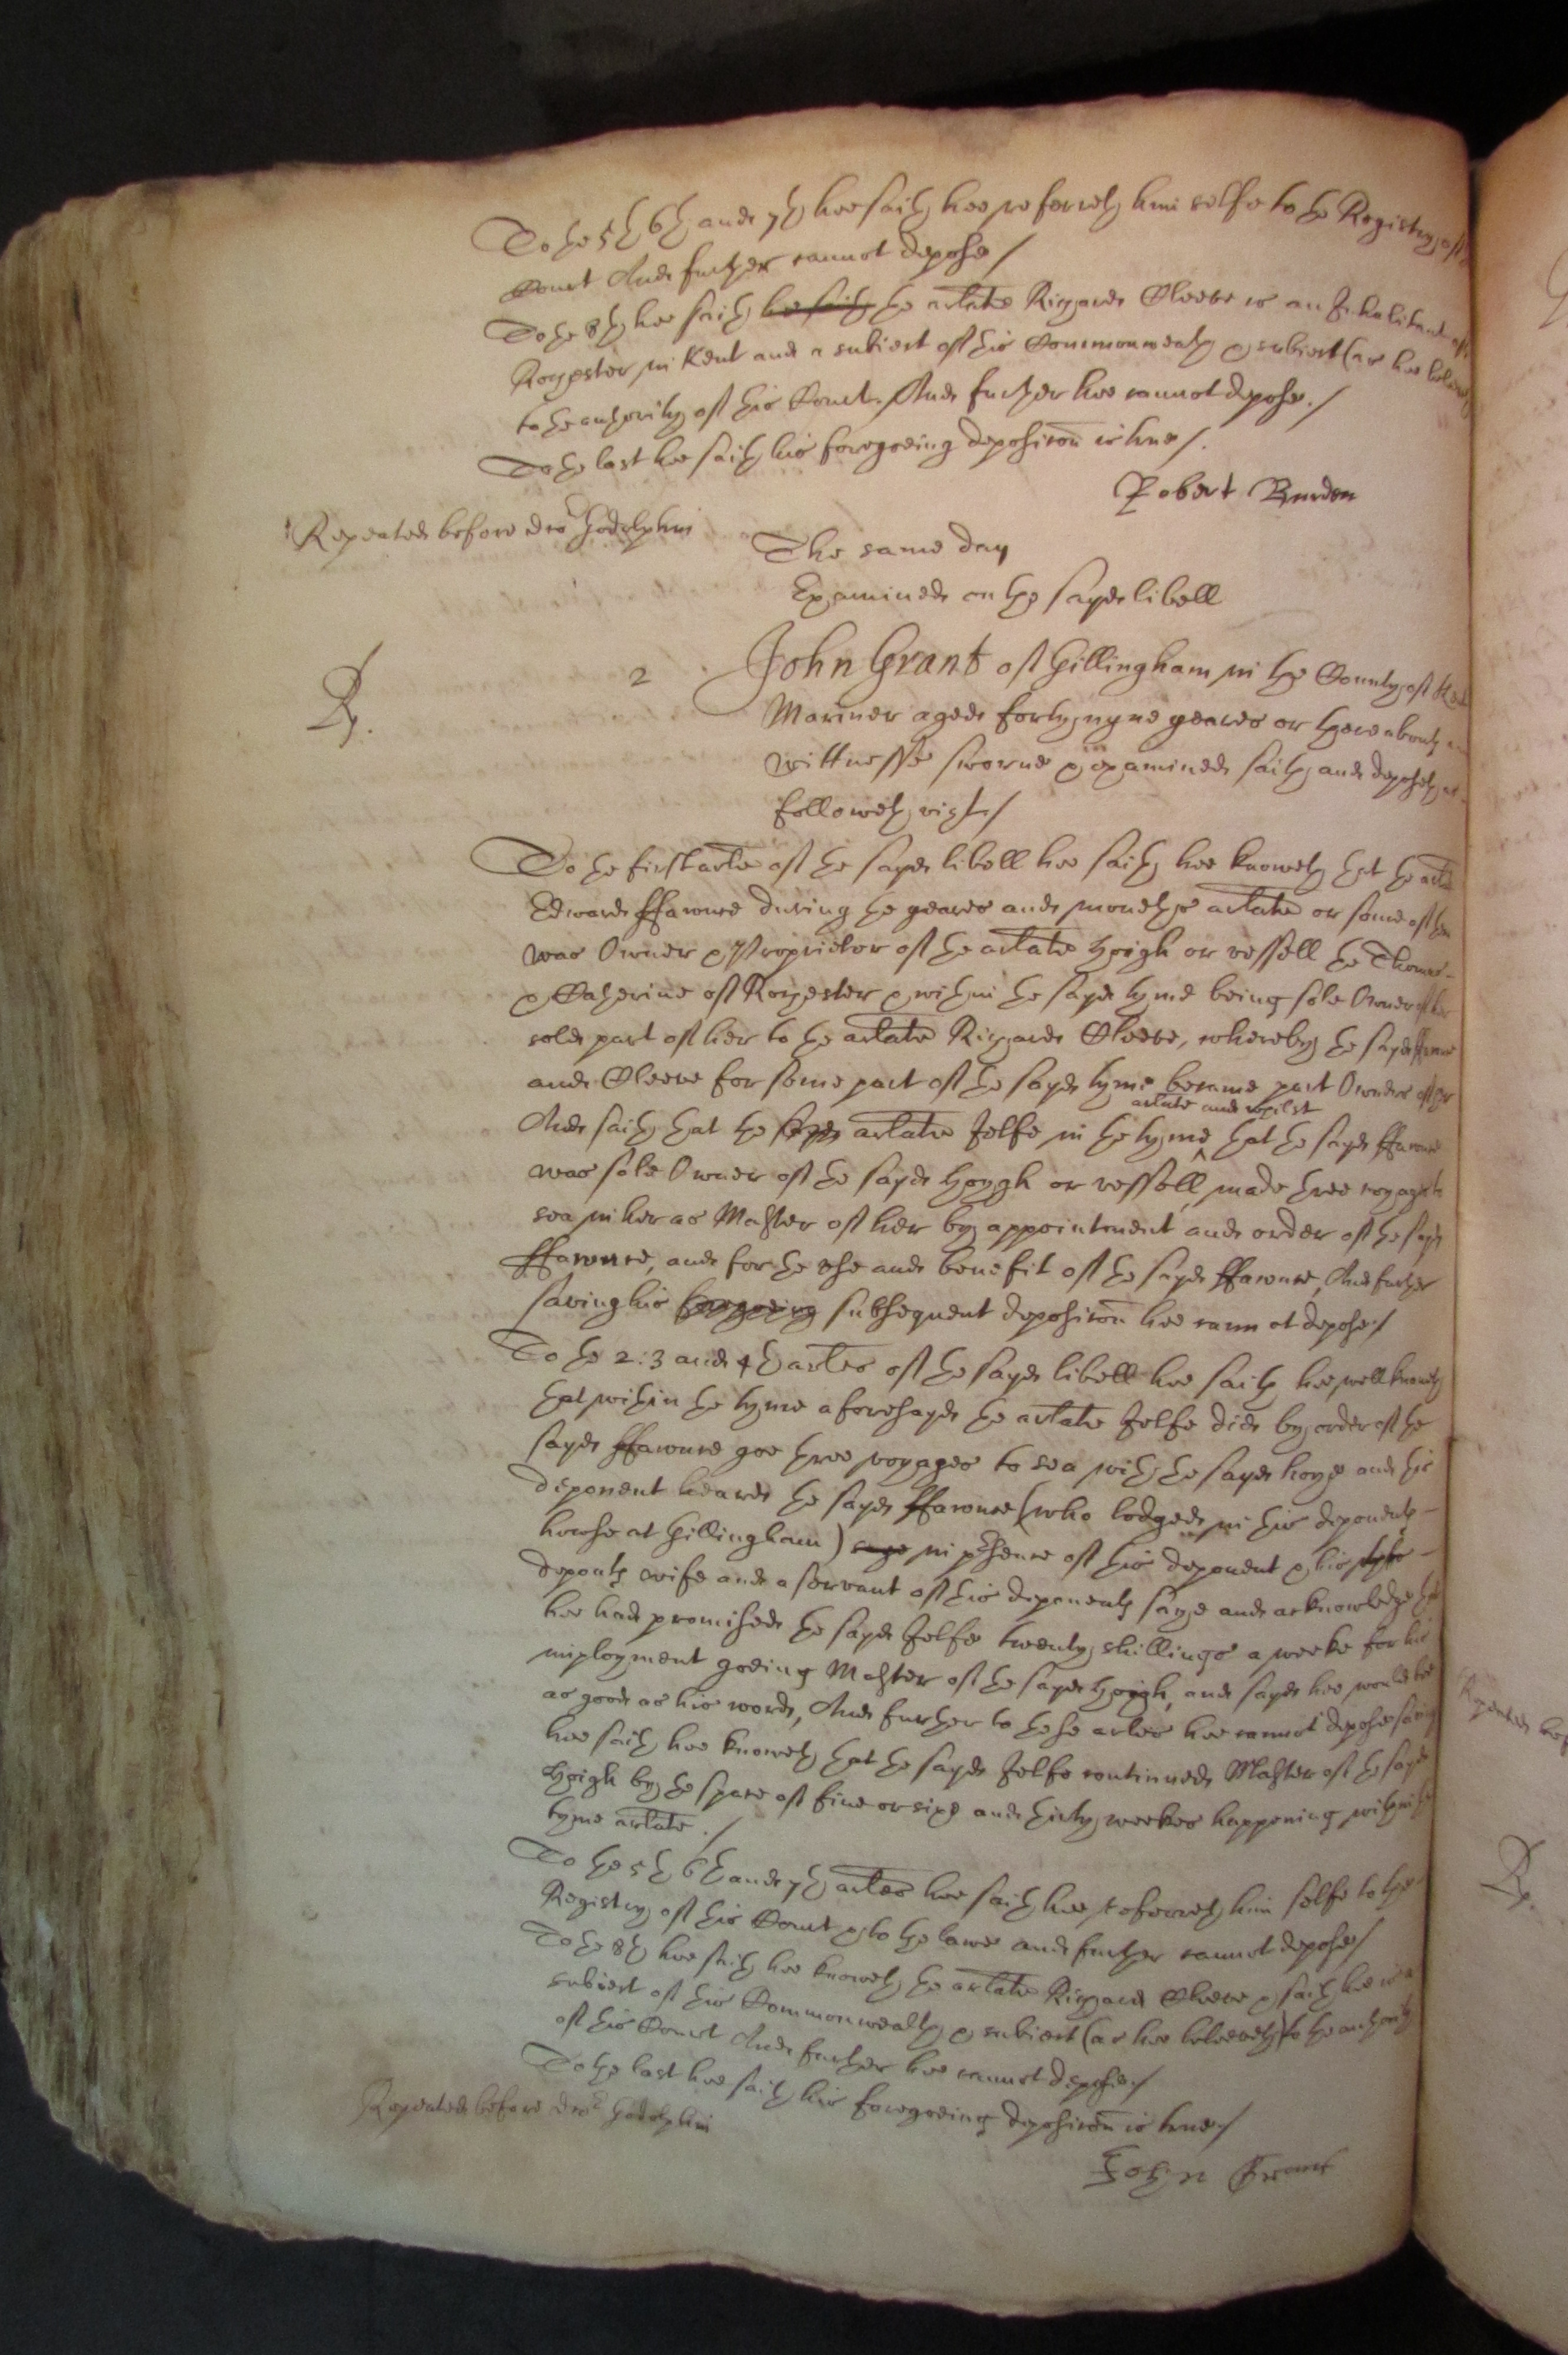 To the 5th 6th and 7th hee saith hee referreth him selfe to the Registry of
Court And further cannot depose/
To the 8th hee saith hee saith the arlate Richard Cleeve is an Inhabitant of
Rochester in Kent and a subiect of this Commonwealth & subiect (as hee beleeveth
to the authority of this Court. And further hee cannot depose./
To the last hee saith his foregoeing deposicon is true/.
Robert Burdon
Repeated before docr Godolphin
The same day
Examined on the sayd libell
R.
2
John Grant of Gillingham in the County of Kent
Mariner aged forty nyne yeares or thereabouts
wittnesse sworne & examined saith and deposeth as
followeth vizt/
To the first arle of the sayd libell hee saith hee knoweth that the arlate
Edward ffawne during the yeares and moneths arlate or some of them
was Owner & Proprietor of the arlate hoigh or vessell the Thomas
& Catherine of Rochester & within the sayd tyme being sole Owner of her
sold part of her to the arlate Richard Cleeve, whereby the sayd ffawne
and Cleeve for some part of the sayd tyme became part Owners of her
arlate and whilst
And saith that the sayd arlate Jelfe in the tyme that the sayd ffawne
was sole Owner of the sayd hoygh or vessell, made three voyages to
sea in her as Master of her by appointment and order of the sayd
ffawne, and for the use and benefit of the sayd ffawne, And further
saving his foregoeing subsequent deposicon hee cannot depose/
To the 2: 3 and 4th arles of the sayd libell hee saith hee well knoweth
that within the tyme aforesayd the arlate Jelfe did by order of the
sayd ffawne goe three voyages to sea with the sayd hoye and this
deponent heard the sayd ffawne (who lodged in this deponents
howse at Gillingham) saye in presence of this deponent & his
deponts wife and a servant of this deponents saye and acknowledge that
hee had promised the sayd Jelfe twenty shillings a weeke for his
imployment goeing Master of the sayd hoigh, and sayd hee would bee
as good as his word, And further to these arles hee cannot depose saving
hee saith hee knoweth that the sayd Jelfe continued Master of the sayd
hoigh by the space of five or six and thirty weekes happening within the
tyme arlate./
To the 5th 6th and 7th arles hee saith hee referreth him selfe to the
Registry of this Court & to the lawe and further cannot depose/
To the 8th hee saith hee knoweth the arlate Richard Cleeve & saith hee is a
subiect of this Commonwealth & subiect (as hee beleeveth) to the authority
of this Court And further hee cannot depose:/
To the last hee saith his foregoeing deposicon is true:/
Repeated before docr Godolphin
John Grant